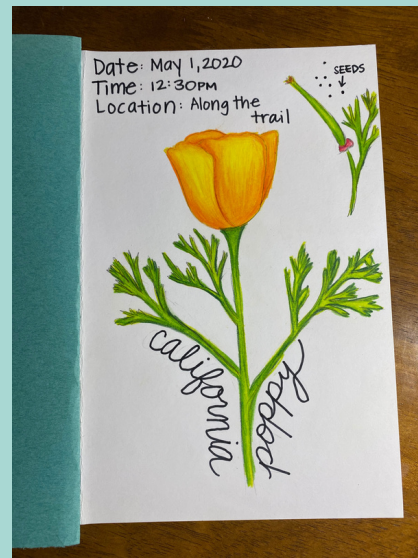 Date: May 1, 2020
Time: 12:30PM
Location: Along the
trail
SEEDS
california
poppy